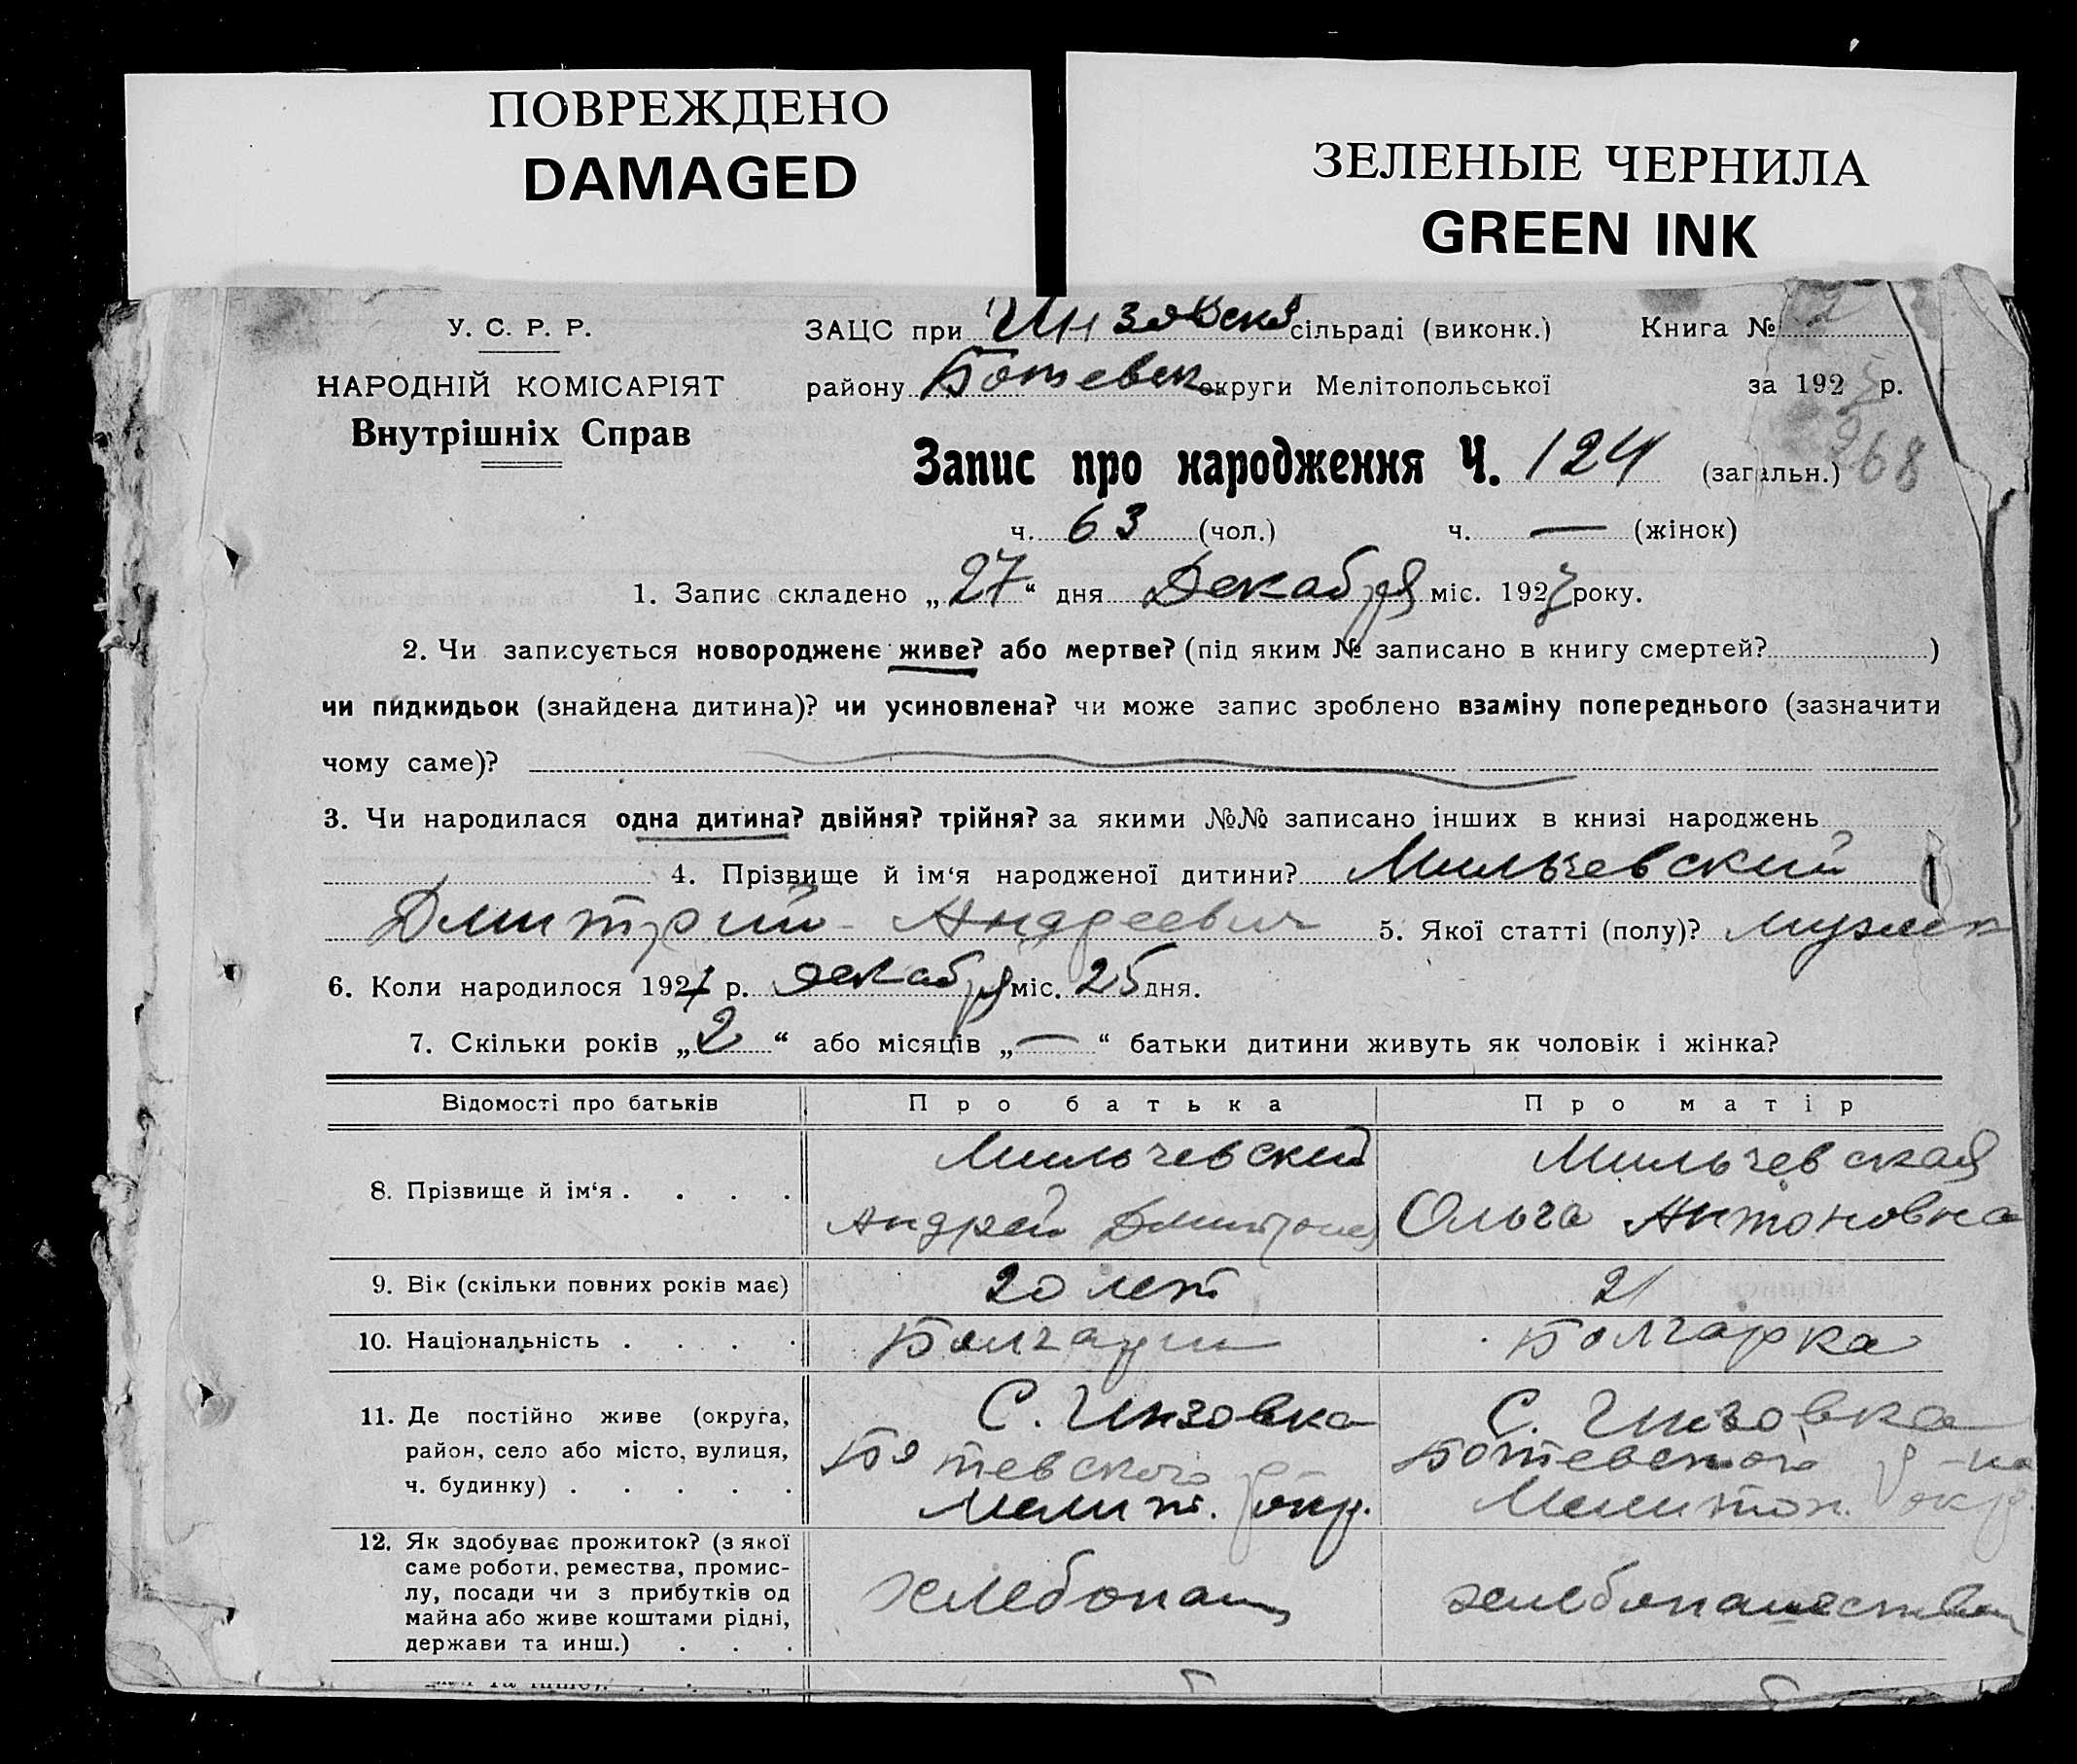 ПОВРЕЖДЕНО
DAMAGED
ЗЕЛЕНЫЕ ЧЕРНИЛА
GREEN INK
У. С. Р. Р.
НАРОДНІЙ КОМІСАРІЯТ
Внутрішніх Справ
ЗАЦС при Инзовско сільраді (виконк.)
району Ботевск округи Мелітопольської
Книга № 2
за 192 р.
968
Запис про народження Ч. 124 (загальн.)
ч. 63 (чол.) ч. — (жінок)
1. Запис складено „27“ дня Декабря міс. 192 року.
2. Чи записується новороджене живе? або мертве? (під яким № записано в книгу смертей? )
чи підкидьок (знайдена дитина)? чи усиновлена? чи може запис зроблено взаміну попереднього (зазначити
чому саме)?
3. Чи народилася одна дитина? двійня? трійня? за якими №№ записано інших в книзі народжень
4. Прізвище й ім‘я народженої дитини? Мильчевский
Дмитрий Андреевич 5. Якої статті (полу)? мужск
6. Коли народилося 192 р. декабря міс. 25 дня.
7. Скільки років „2“ або місяців „—“ батьки дитини живуть як чоловік і жінка?
Відомості про батьків Про батька Про матір
8. Прізвище й ім‘я . . . .
Мильчевский
Андрей Дмитриев
Мильчевская
Ольга Антоновна
9. Вік (скільки повних років має) 20 лет 21
10. Національність . . . . Болгарин Болгарка
11. Де постійно живе (округа,
район, село або місто, вулиця,
ч. будинку) . . . . .
С. Инзовка
Ботевского
Мелит. окр.
С. Инзовка
Ботевского р-на
Мелитоп. окр.
12. Як здобуває прожиток? (з якої
саме роботи, ремества, промис-
лу, посади чи з прибутків од
майна або живе коштами рідні,
держави та инш.) . . .
хлебопаш
хлебопашеством